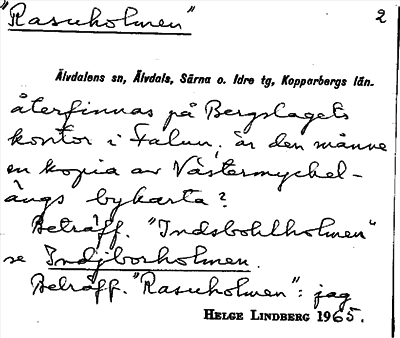 "Rasuholmen" 2
Älvdalens sn, Älvdals, Särna o. Idre tg, Kopparbergs län.
återfinnas på Bergslagets
kontor i Falun. är den månne
en kopia av Västermyckel-
ängs bykarta?
Beträff. "Indsbohlholmen"
se Indjborholmen.
Beträff. "Rasuholmen": jag
HELGE LINDBERG 1965.